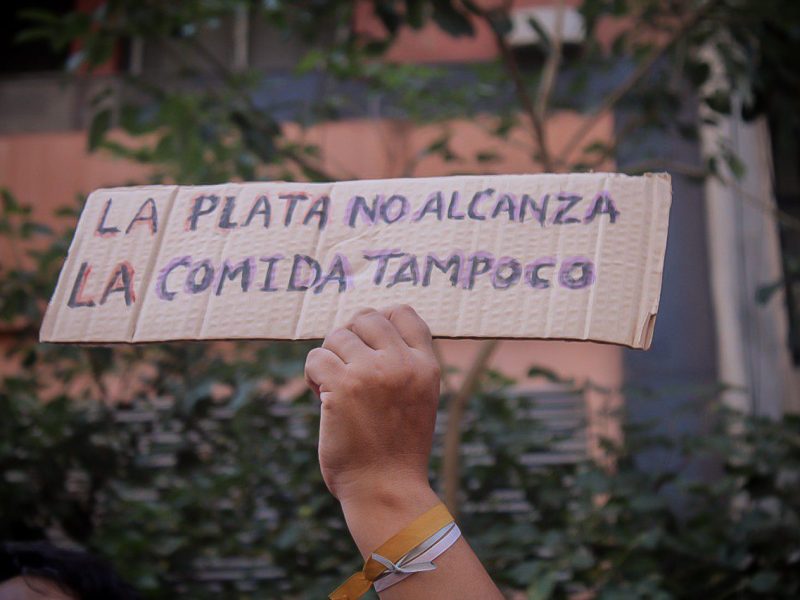 LA PLATA NO ALCANZA
LA COMIDA TAMPOCO